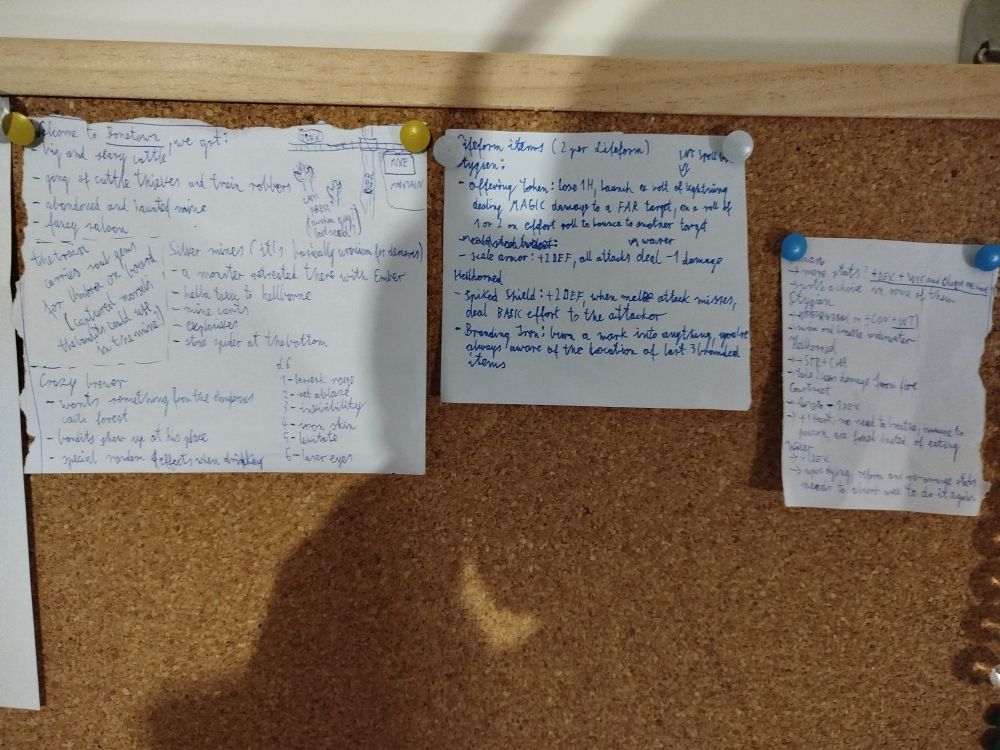 elcome to Bonetown, we got:
big and scary cattle
- gang of cattle thieves and train robbers
- abandoned and haunted mine
- fancy saloon
MINE
MOUNTAIN
RIVER
the train
carries soul gems
for Umbrot on board
(captured
the bandits could use
in the mine?)
Silver mines (it's basically uranium for demons)
- a monster retreated there with Ember
- hella toxic to hellborne
- mine carts
- explosives
- stone spider at the bottom
Crazy brewer
- wants something from the dangerous
cacti forest
- bandits show up at his place
- special random effects when drinking
d6
1 - berserk rage
2 - set ablaze
3 - invisibility
4 - iron skin
5 - levitate
6 - laser eyes
Lifeform items (2 per Lifeform)
INT Spell
tygian:
- Offering Token: lose 1H, launch a bolt of lightning
dealing MAGIC damage to a FAR target, on a roll of
1 or 2 on effort roll to bounce to another target
- scale armor: +2DEF, all attacks deal -1 damage
Hellhorned
- Spiked Shield: +2DEF, when melee attack misses,
deal BASIC effort to the attacker
- Branding Iron: burn a mark into anything, you're
always aware of the location of last 3 branded
items
→ more stats? +DEX + WIS and
Stygian
or +CON + INT
→ and breathe underwater
Hellhorned
→ +STR + CHA
→ take less damage from fire
Construct
- 1DEX
→ +1 Heart, no need to breathe, immune to
poison, instead of eating
→ +1DEX
→ upon dying, reform and re-arrange stats
needs to to do it again